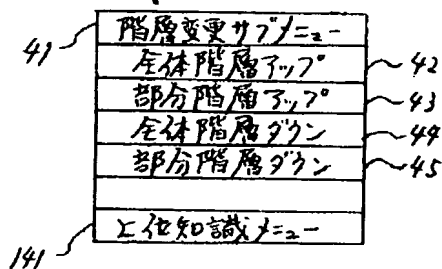 41 階層変更サブメニュー
全体階層アップ 42
部分階層アップ 43
全体階層ダウン 44
部分階層ダウン 45
141 上位知識メニュー